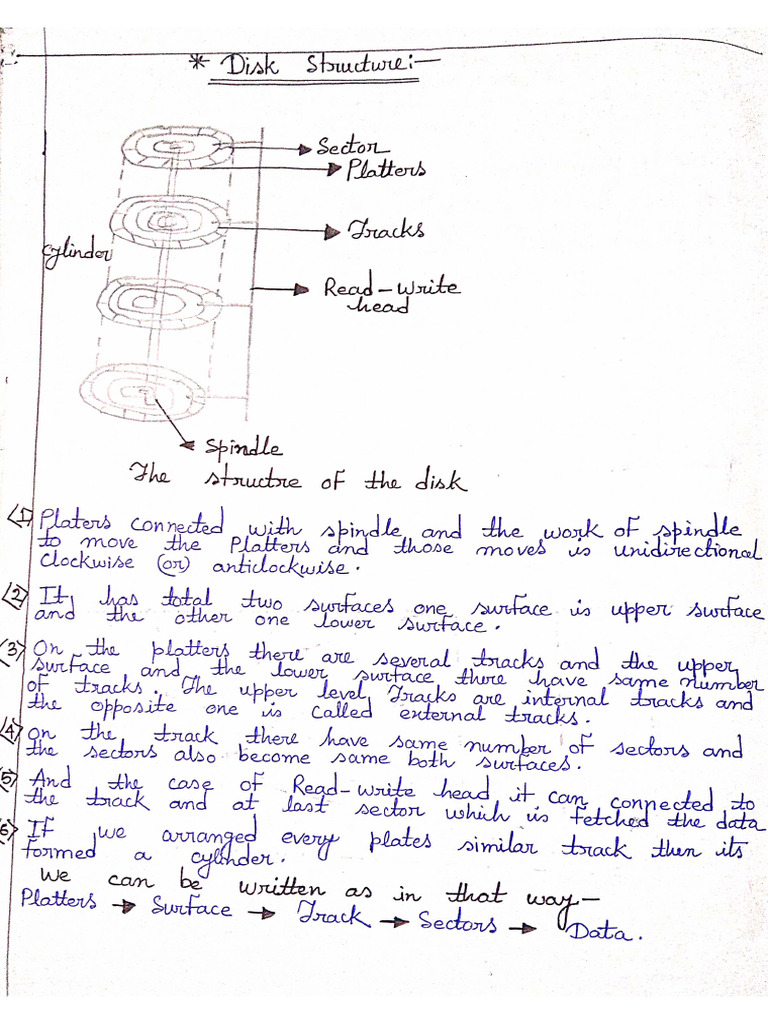 * Disk Structure:-
Sector
Platters
Tracks
cylinder
Read-write
head
Spindle
The structre of the disk
(1) Platers connected with spindle and the work of spindle
to move the Platters and those moves is unidirectional
clockwise (or) anticlockwise.
(2) It has total two surfaces one surface is upper surface
and the other one lower surface.
(3) On the platters there are several tracks and the upper
surface and the lower surface there have same number
of tracks. The upper level Tracks are internal tracks and
the opposite one is called external tracks.
(4) on the track there have same number of sectors and
the sectors also become same both surfaces.
(5) And the case of Read-write head it can connected to
the track and at last sector which is fetched the data
(6) If we arranged every plates similar track then its
formed a cylinder.
We can be written as in that way-
Platters → Surface → Track → Sectors → Data.